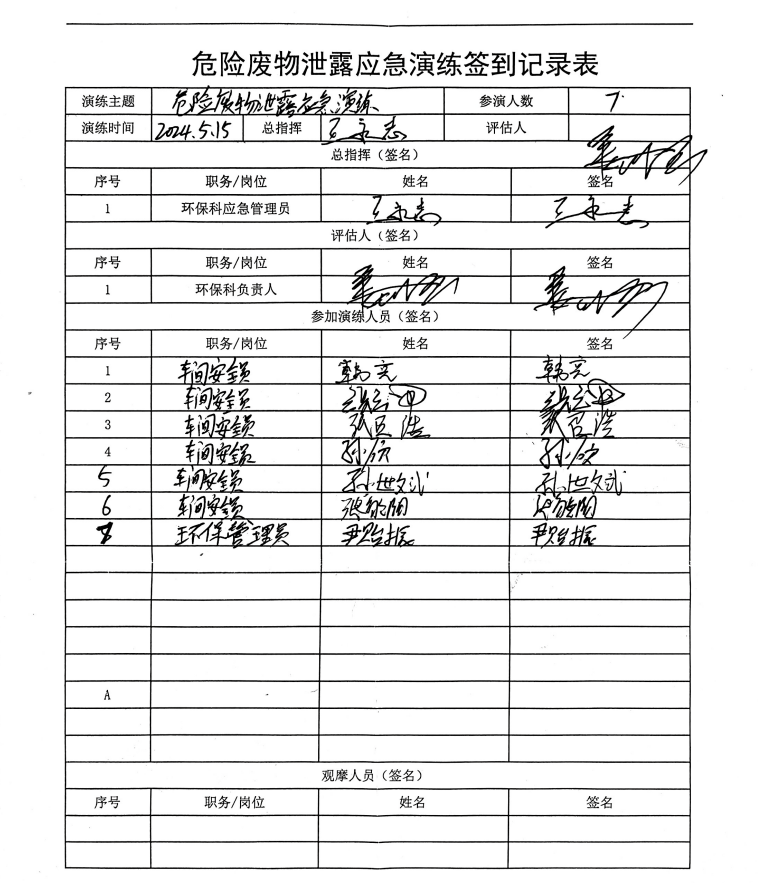 危险废物泄露应急演练签到记录表
演练主题 危险废物泄露应急演练 参演人数 7
演练时间 2024.5.15 总指挥 王永志 评估人
总指挥（签名）
序号 职务/岗位 姓名 签名
1 环保科应急管理员 王永志 王永志
评估人（签名）
序号 职务/岗位 姓名 签名
1 环保科负责人
参加演练人员（签名）
序号 职务/岗位 姓名 签名
1 车间安全员 韩亮 韩亮
2 车间安全员
3 车间安全员
4 车间安全员 孙欣 孙欣
5 车间安全员 孙世文 孙世文
6 车间安全员
7 环保管理员 尹贻振 尹贻振
A
观摩人员（签名）
序号 职务/岗位 姓名 签名